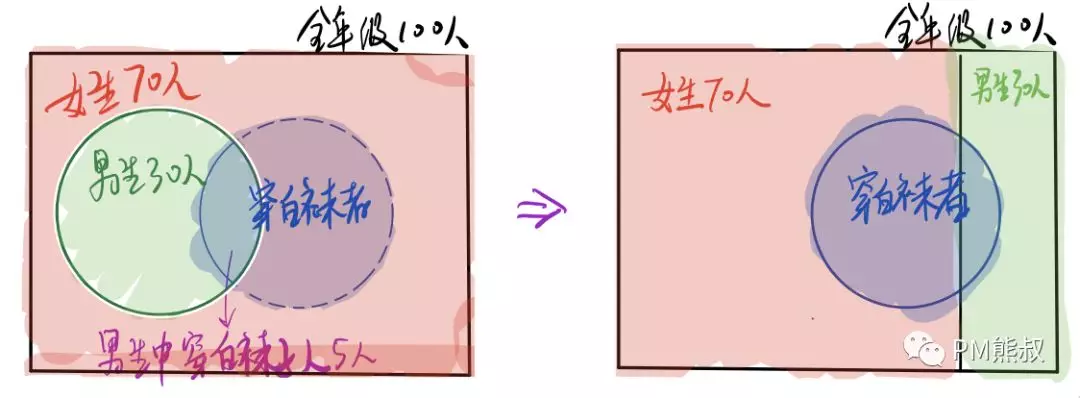 全年级100人
女生70人
男生30人
穿白袜者
男生中穿白袜之人5人
全年级100人
女生70人
男生30人
穿白袜者
PM熊叔